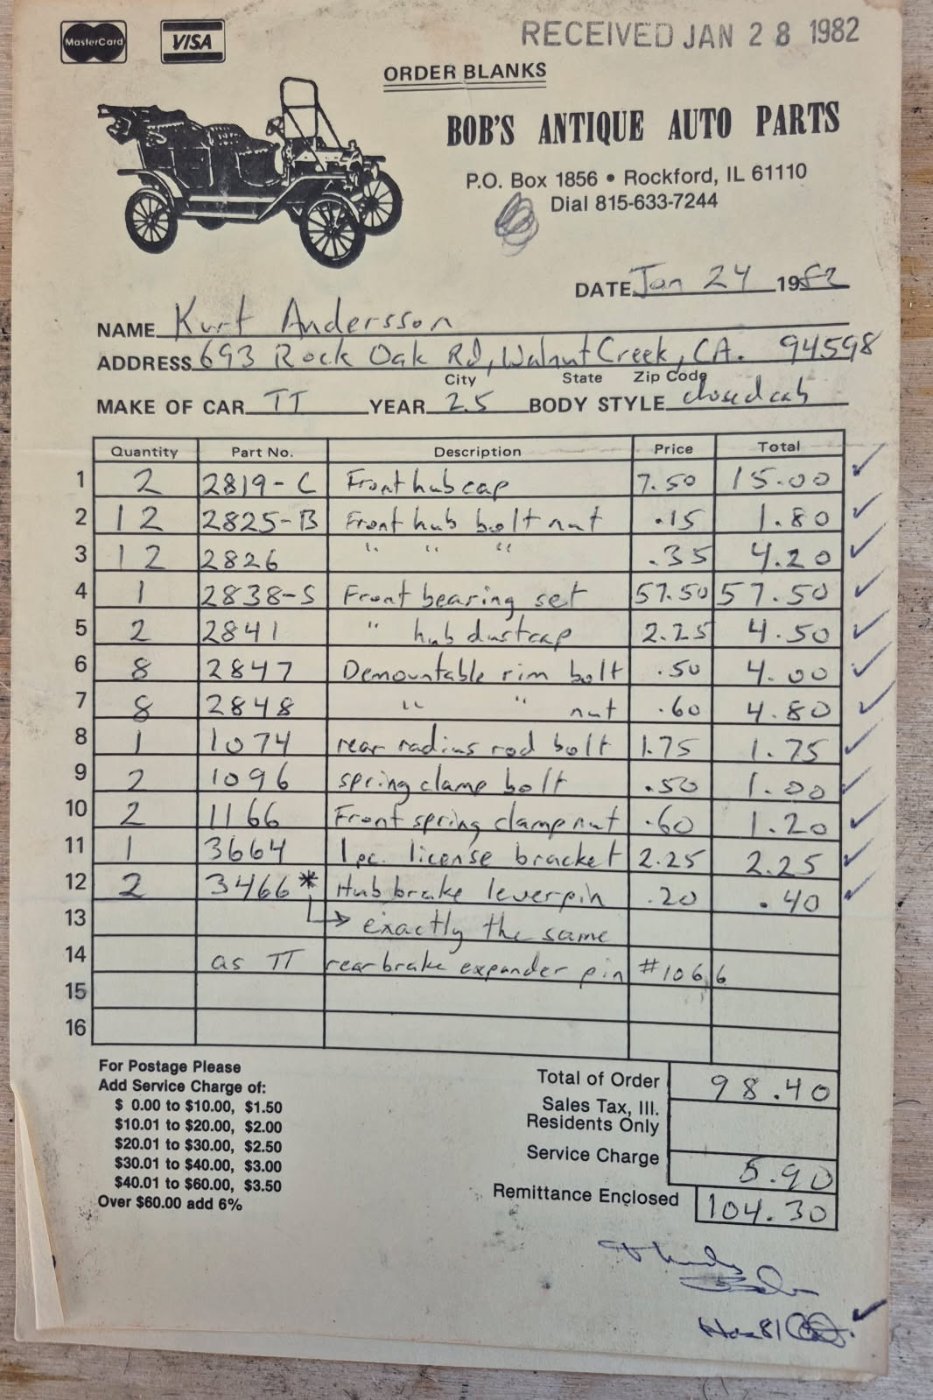 MasterCard VISA RECEIVED JAN 28 1982
ORDER BLANKS
BOB'S ANTIQUE AUTO PARTS
P.O. Box 1856 • Rockford, IL 61110
Dial 815-633-7244
DATE Jan 24 1982
NAME Kurt Andersson
ADDRESS 693 Rock Oak Rd, Walnut Creek, CA. 94598
City State Zip Code
MAKE OF CAR TT YEAR 25 BODY STYLE closed cab
Quantity Part No. Description Price Total
1 2 2819-C Front hub cap 7.50 15.00 ✓
2 12 2825-B Front hub bolt nut .15 1.80 ✓
3 12 2826 " " " .35 4.20 ✓
4 1 2838-S Front bearing set 57.50 57.50 ✓
5 2 2841 " hub dustcap 2.25 4.50 ✓
6 8 2847 Demountable rim bolt .50 4.00 ✓
7 8 2848 " " nut .60 4.80 ✓
8 1 1074 rear radius rod bolt 1.75 1.75 ✓
9 2 1096 spring clamp bolt .50 1.00 ✓
10 2 1166 Front spring clamp nut .60 1.20 ✓
11 1 3664 1 pc. license bracket 2.25 2.25 ✓
12 2 3466* Hub brake lever pin .20 .40 ✓
13 → exactly the same
14 as TT rear brake expander pin #1066
15
16
For Postage Please
Add Service Charge of:
$ 0.00 to $10.00, $1.50
$10.01 to $20.00, $2.00
$20.01 to $30.00, $2.50
$30.01 to $40.00, $3.00
$40.01 to $60.00, $3.50
Over $60.00 add 6%
Total of Order 98.40
Sales Tax, Ill.
Residents Only
Service Charge 5.90
Remittance Enclosed 104.30